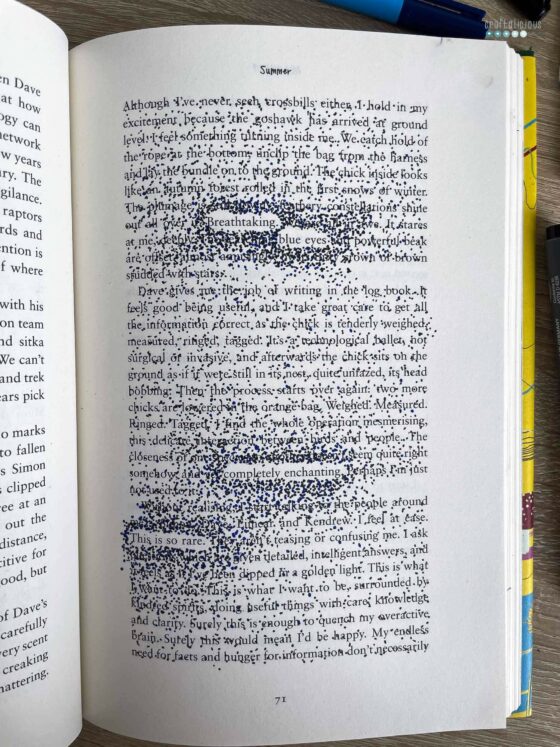 craftalicious
Summer
Although I've never seen crossbills either, I hold in my
excitement because the goshawk has arrived at ground
level. I feel something turning inside me. We catch hold of
the rope at the bottom, unclip the bag from the harness
and lay the bundle on to the ground. The chick inside looks
like an autumn forest rolled in the first snows of winter.
The plumage constellations shine
out all over Breathtaking. It stares
at me, blue eyes and powerful beak
are crown of brown
studded with stars.
Dave gives me the job of writing in the log book. It
feels good being useful, and I take great care to get all
the information correct, as the chick is tenderly weighed,
measured, ringed, tagged. It's a technological ballet, not
surgical or invasive, and afterwards the chick sits on the
ground as if it were still in its nest, quite unfazed, its head
bobbing. Then the process starts over again: two more
chicks are lowered in the orange bag. Weighed. Measured.
Ringed. Tagged. I find the whole operation mesmerising,
this delicate interaction between birds and people. The
closeness of seem quite right
somehow, and completely enchanting. Perhaps I'm just
not used to it.
talking to the people around
and Kendrew. I feel at ease.
This is so rare. They aren't teasing or confusing me. I ask
given detailed, intelligent answers, and
it feels as if I've been dipped in a golden light. This is what
I want to do. This is what I want to be, surrounded by
kindred spirits, doing useful things with care, knowledge
and clarity. Surely this is enough to quench my overactive
brain. Surely this would mean I'd be happy. My endless
need for facts and hunger for information don't necessarily
71
en Dave
at how
ogy can
network
w years
ary. The
igilance.
raptors
rds and
ention is
f where
with his
on team
nd sitka
We can't
and trek
ears pick
o marks
to fallen
s Simon
s clipped
ree at an
out the
distance,
titive for
ood, but
of Dave's
carefully
very scent
creaking
hattering.